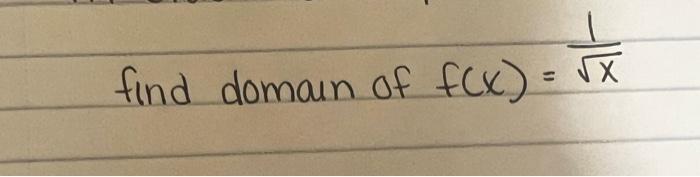 find domain of f(x) = 1/√x